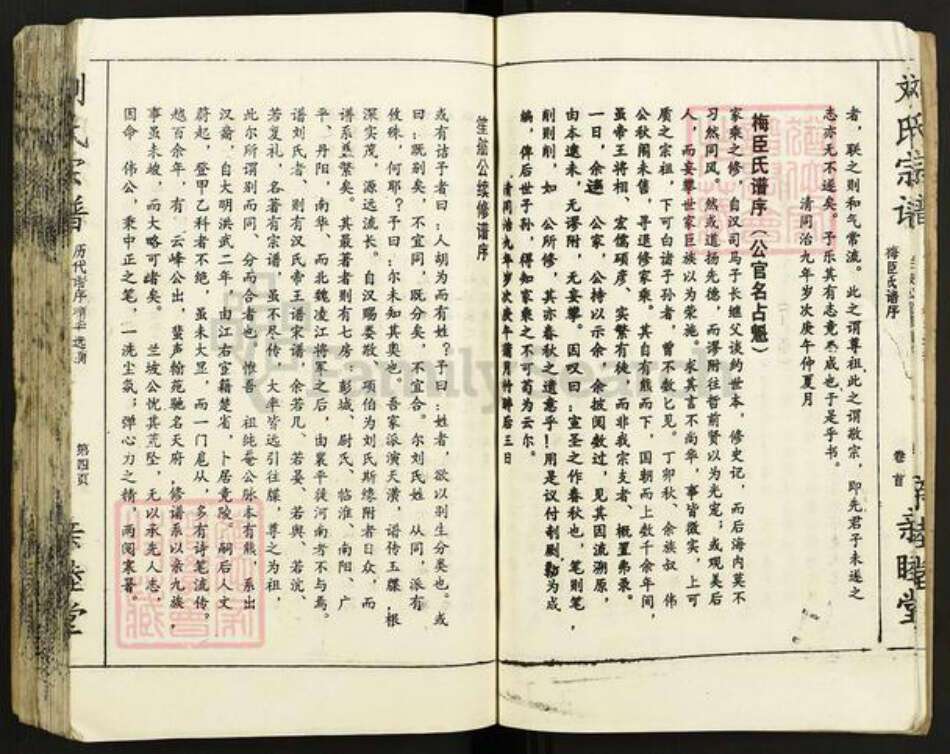 刘氏宗谱
梅臣氏谱序
卷首
亲睦堂
者，联之则和气常流。此之谓尊祖此之谓敬宗，即先君子未遂之
志亦无不遂矣。予乐其有志竟成也于是乎书。
清同治九年岁次庚午仲夏月
梅臣氏谱序（公官名占魁）
家乘之修，自汉司马子长继父谈约世本，修史记，而后海内莫不
习然同风。然或道扬先德，而谬附往哲前贤以为光宠；或觊美后
人，而妄攀世家巨族以为荣施。求其言不尚华，事皆徵实，上可
质之宗祖，下可白诸子孙者，曾不数数见。丁卯秋、余族叔 伟
公秋闱未售，寻退修家乘。其自有熊而下，国朝而上数千余年间，
虽帝王将相、宏儒硕彦，实繁有徒，而非我宗支者、概置弗录。
一日，余造 公家，公持以示余，余披阅数过，见其因流溯原，
由本逮末，无谬附，无妄攀。因叹曰：宣圣之作春秋也，笔则笔，
削则削，如 公所修，其亦春秋之遗意乎！用是议付剞劂勷为成
编，俾后世子孙，得知家乘之不可苟为云尔。
清同治九年岁次庚午蒲月竹醉后三日
笙船公续修谱序
或有诘于者曰：人胡为而有姓？予曰：姓者，欲以别生分类也。或
曰：既别矣，不宜同，既分矣，不宜合。尔刘氏姓 从同，派有
攸殊，何耶？予曰：尔未知其奥也，吾家派演天潢，谱传玉牒，根
深实茂，源远流长。自汉赐娄敬、项伯为刘氏斯缘附者日众，而
谱系益繁矣。其最著者则有七房，彭城、尉氏、临淮、南阳、广
平、丹阳，南华、而北魏凌江将军之后，由襄平徙河南者不与焉。
谱刘氏者、则有汉氏帝王谱宋谱，余若几、若晏、若舆、若沆、
若复礼，名著有宗谱，虽不尽传，大率皆远引往牒，尊之为祖，
此尔所谓别而同、分而合者也。惟吾 祖纯菴公脉本有熊，系出
汉裔，自大明洪武二年，由江右宦籍楚省，卜居竟陵。嗣后人文
蔚起，登甲乙科者不绝，虽未大显，而一门扈从，多有诗笔流传。
越百余年，有 云峰公出，蜚声翰苑驰名天府，修谱系以亲九族，
事虽未竣，而大略可睹矣。 兰坡公忧其荒坠，无以承先人志，
因命 伟公，秉中正之笔，一洗尘氛；弹心力之精，两阅寒暑。
刘氏宗谱
历代谱序
第四页
亲睦堂
FamilySearch